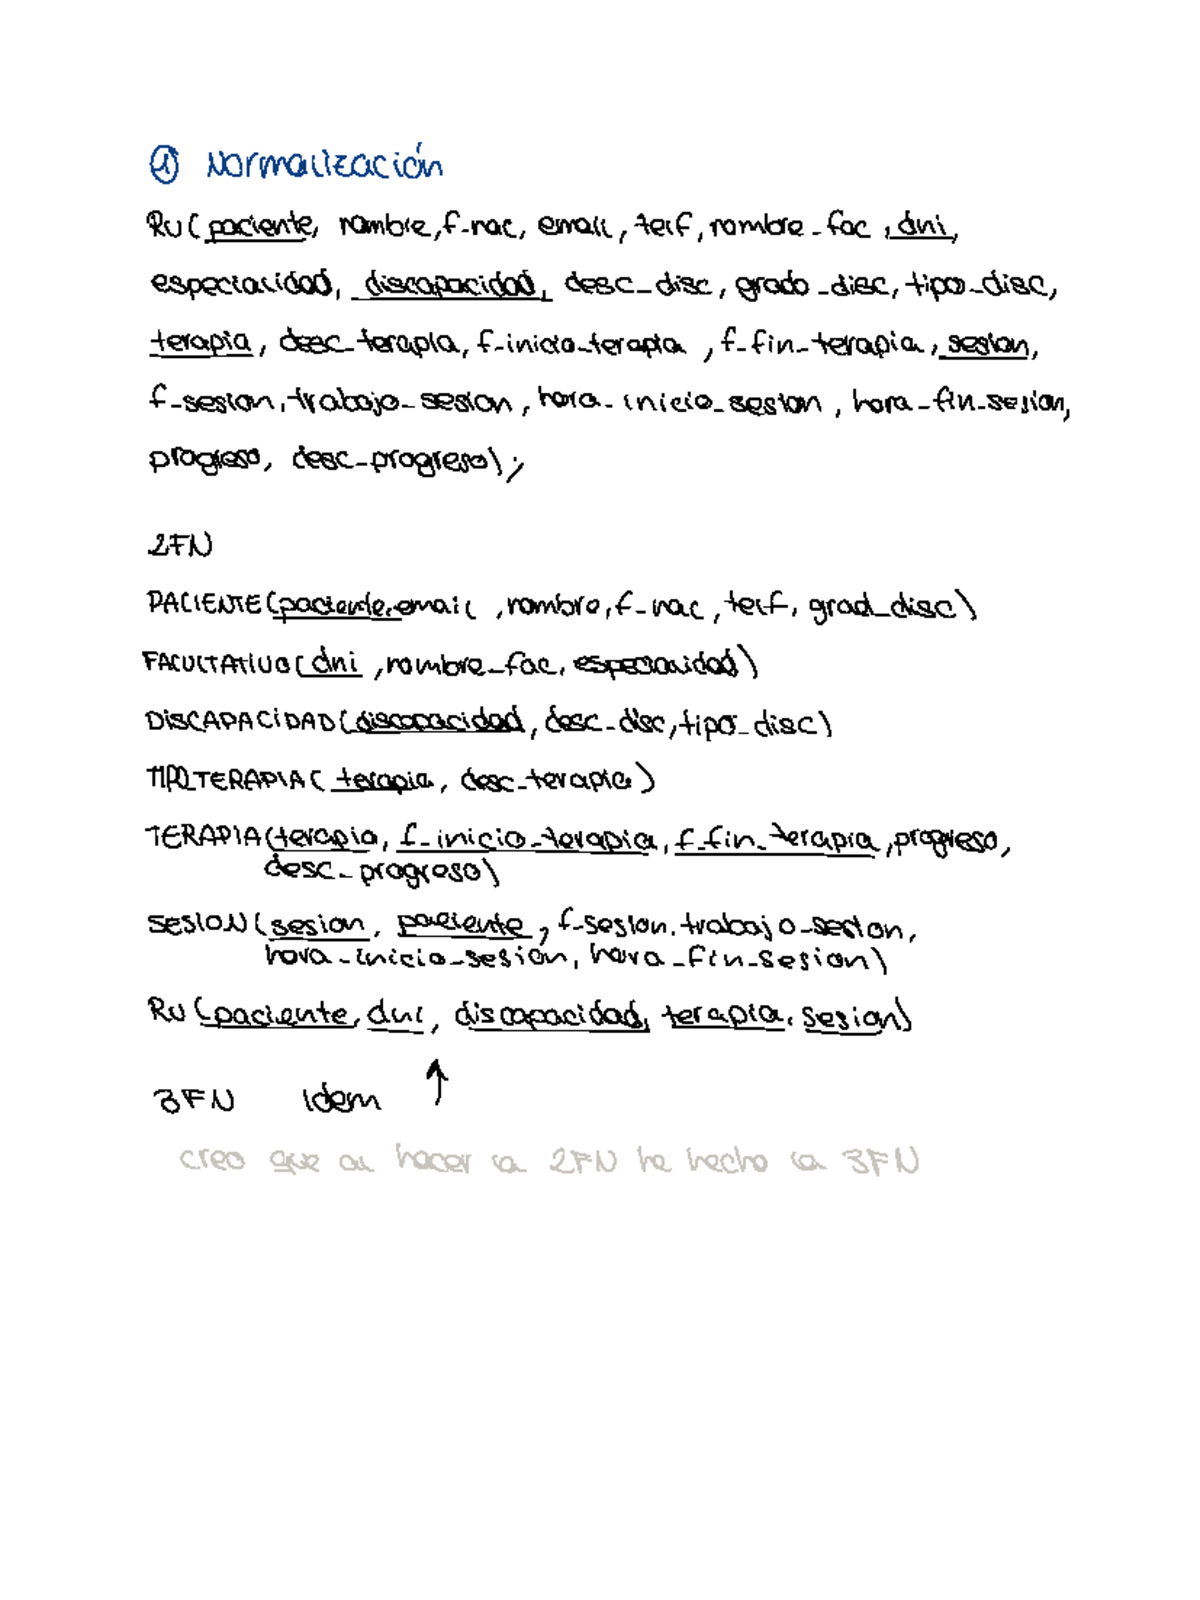 ① Normalización
RU (paciente, nombre, f-nac, email, telf, nombre_fac, dni,
especialidad, discapacidad, desc_disc, grado_disc, tipo_disc,
terapia, desc_terapia, f-inicio_terapia, f-fin_terapia, sesion,
f-sesion, trabajo_sesion, hora_inicio_sesion, hora_fin_sesion,
progreso, desc_progreso);
2FN
PACIENTE (paciente, email, nombre, f-nac, telf, grad_disc)
FACULTATIVO (dni, nombre_fac, especialidad)
DISCAPACIDAD (discapacidad, desc_disc, tipo_disc)
TIPO_TERAPIA (terapia, desc_terapia)
TERAPIA (terapia, f_inicio_terapia, f_fin_terapia, progreso,
desc_progreso)
SESION (sesion, paciente, f-sesion, trabajo_sesion,
hora_inicio_sesion, hora_fin_sesion)
RU (paciente, dni, discapacidad, terapia, sesion)
3FN idem ↑
creo que al hacer la 2FN he hecho la 3FN